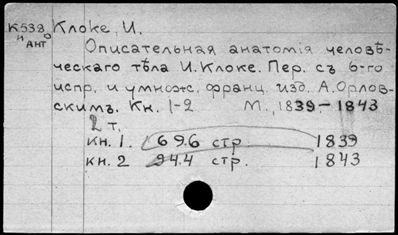 К538 Клоке, И.
н АНТ
Описательная анатомія человѣ-
ческаго тѣла И. Клоке. Пер. съ 6-го
испр. и умнож. франц. изд. А. Орлов-
скимъ. Кн. 1-2 М., 1839-1843
2 т.
кн. 1. 696 стр. 1839
кн. 2 944 стр. 1843